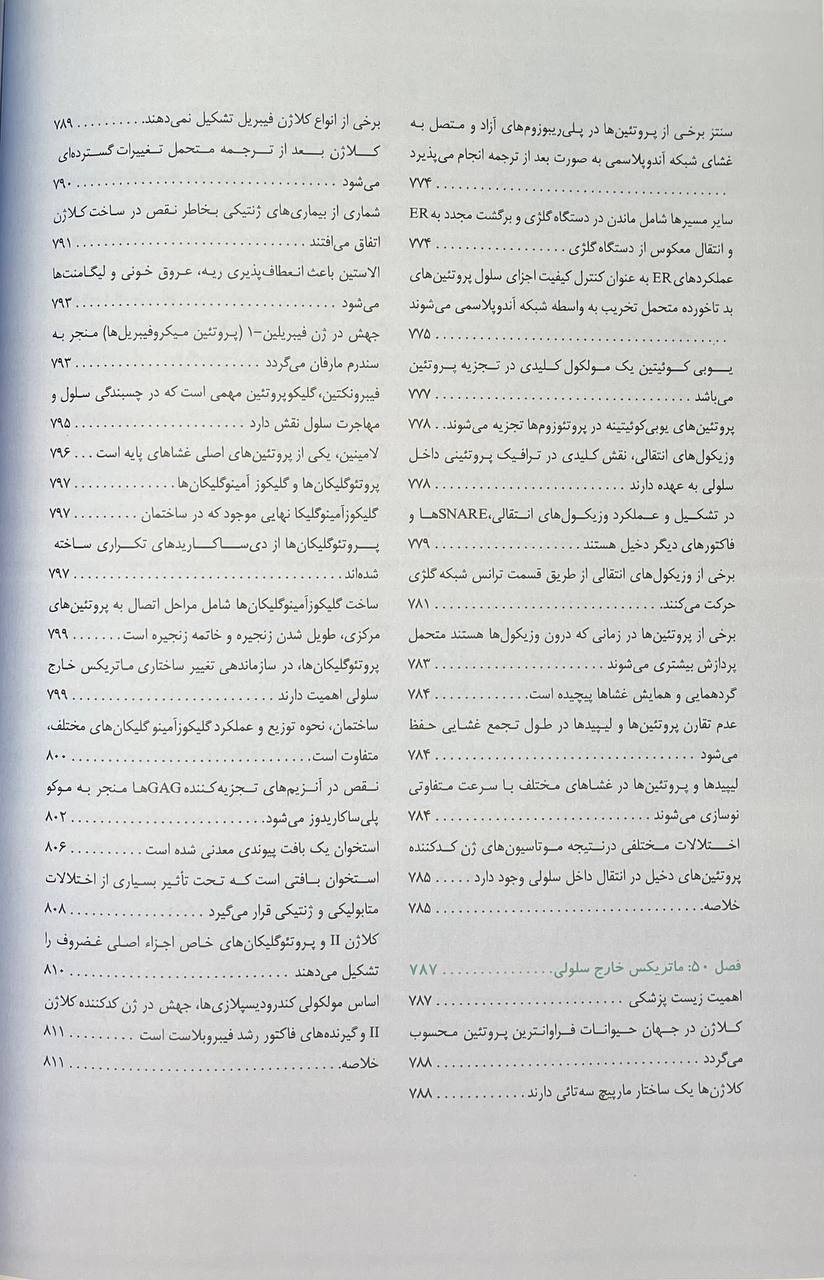 سنتز برخی از پروتئین‌ها در پلی‌ریبوزوم‌های آزاد و متصل به
غشای شبکه آندوپلاسمی به صورت بعد از ترجمه انجام می‌پذیرد
. . . . . . . . . . . . . . . . . . . . . . . . . . . . . . . . . . ۷۷۴
سایر مسیرها شامل ماندن در دستگاه گلژی و برگشت مجدد به ER
و انتقال معکوس از دستگاه گلژی . . . . . . . . . . . . . . . . . . ۷۷۴
عملکردهای ER به عنوان کنترل کیفیت اجزای سلول پروتئین‌های
بد تاخورده متحمل تخریب به واسطه شبکه آندوپلاسمی می‌شوند
. . . . . . . . . . . . . . . . . . . . . . . . . . . . . . . . . . ۷۷۵
یوبی کوئیتین یک مولکول کلیدی در تجزیه پروتئین
می‌باشد . . . . . . . . . . . . . . . . . . . . . . . . . . . . . . ۷۷۷
پروتئین‌های یوبی‌کوئیتینه در پروتئوزوم‌ها تجزیه می‌شوند. . ۷۷۸
وزیکول‌های انتقالی، نقش کلیدی در ترافیک پروتئینی داخل
سلولی به عهده دارند . . . . . . . . . . . . . . . . . . . . . . . . ۷۷۸
در تشکیل و عملکرد وزیکول‌های انتقالی،SNAREها و
فاکتورهای دیگر دخیل هستند . . . . . . . . . . . . . . . . . . . . ۷۷۹
برخی از وزیکول‌های انتقالی از طریق قسمت ترانس شبکه گلژی
حرکت می‌کنند. . . . . . . . . . . . . . . . . . . . . . . . . . . . ۷۸۱
برخی از پروتئین‌ها در زمانی که درون وزیکول‌ها هستند متحمل
پردازش بیشتری می‌شوند . . . . . . . . . . . . . . . . . . . . . . ۷۸۳
گردهمایی و همایش غشاها پیچیده است. . . . . . . . . . . . . . ۷۸۴
عدم تقارن پروتئین‌ها و لیپیدها در طول تجمع غشایی حفظ
می‌شود . . . . . . . . . . . . . . . . . . . . . . . . . . . . . . . ۷۸۴
لیپیدها و پروتئین‌ها در غشاهای مختلف با سرعت متفاوتی
نوسازی می‌شوند . . . . . . . . . . . . . . . . . . . . . . . . . . ۷۸۴
اختلالات مختلفی درنتیجه موتاسیون‌های ژن کدکننده
پروتئین‌های دخیل در انتقال داخل سلولی وجود دارد . . . . . ۷۸۵
خلاصه. . . . . . . . . . . . . . . . . . . . . . . . . . . . . . . . ۷۸۵
فصل ۵۰: ماتریکس خارج سلولی. . . . . . . . . . . . . . . ۷۸۷
اهمیت زیست پزشکی . . . . . . . . . . . . . . . . . . . . . . . . ۷۸۷
کلاژن در جهان حیوانات فراوانترین پروتئین محسوب
می‌گردد . . . . . . . . . . . . . . . . . . . . . . . . . . . . . . . ۷۸۸
کلاژن‌ها یک ساختار مارپیچ سه‌تائی دارند . . . . . . . . . . . . ۷۸۸
برخی از انواع کلاژن فیبریل تشکیل نمی‌دهند. . . . . . . . . . ۷۸۹
کلاژن بعد از ترجمه متحمل تغییرات گسترده‌ای
می‌شود . . . . . . . . . . . . . . . . . . . . . . . . . . . . . . . ۷۹۰
شماری از بیماری‌های ژنتیکی بخاطر نقص در ساخت کلاژن
اتفاق می‌افتند . . . . . . . . . . . . . . . . . . . . . . . . . . . ۷۹۱
الاستین باعث انعطاف‌پذیری ریه، عروق خونی و لیگامنت‌ها
می‌شود . . . . . . . . . . . . . . . . . . . . . . . . . . . . . . . ۷۹۳
جهش در ژن فیبریلین-۱ (پروتئین میکروفیبریل‌ها) منجر به
سندرم مارفان می‌گردد . . . . . . . . . . . . . . . . . . . . . . . ۷۹۳
فیبرونکتین، گلیکوپروتئین مهمی است که در چسبندگی سلول و
مهاجرت سلول نقش دارد . . . . . . . . . . . . . . . . . . . . . . ۷۹۵
لامینین، یکی از پروتئین‌های اصلی غشاهای پایه است . . . ۷۹۶
پروتئوگلیکان‌ها و گلیکوز آمینوگلیکان‌ها. . . . . . . . . . . . . . ۷۹۷
گلیکوزآمینوگلیکا نهایی موجود که در ساختمان . . . . . . . . . ۷۹۷
پروتئوگلیکان‌ها از دی‌ساکاریدهای تکراری ساخته
شده‌اند . . . . . . . . . . . . . . . . . . . . . . . . . . . . . . . ۷۹۷
ساخت گلیکوزآمینوگلیکان‌ها شامل مراحل اتصال به پروتئین‌های
مرکزی، طویل شدن زنجیره و خاتمه زنجیره است. . . . . . . ۷۹۹
پروتئوگلیکان‌ها، در سازماندهی تغییر ساختاری ماتریکس خارج
سلولی اهمیت دارند . . . . . . . . . . . . . . . . . . . . . . . . ۷۹۹
ساختمان، نحوه توزیع و عملکرد گلیکوزآمینو گلیکان‌های مختلف،
متفاوت است. . . . . . . . . . . . . . . . . . . . . . . . . . . . ۸۰۰
نقص در آنزیم‌های تجزیه‌کننده GAGها منجر به موکو
پلی‌ساکاریدوز می‌شود. . . . . . . . . . . . . . . . . . . . . . . ۸۰۲
استخوان یک بافت پیوندی معدنی شده است . . . . . . . . . . ۸۰۶
استخوان بافتی است که تحت تأثیر بسیاری از اختلالات
متابولیکی و ژنتیکی قرار می‌گیرد . . . . . . . . . . . . . . . . . ۸۰۸
کلاژن II و پروتئوگلیکان‌های خاص اجزاء اصلی غضروف را
تشکیل می‌دهند . . . . . . . . . . . . . . . . . . . . . . . . . . ۸۱۰
اساس مولکولی کندرودیسپلازی‌ها، جهش در ژن کدکننده کلاژن
II و گیرنده‌های فاکتور رشد فیبروبلاست است . . . . . . . . . ۸۱۱
خلاصه. . . . . . . . . . . . . . . . . . . . . . . . . . . . . . . . ۸۱۱